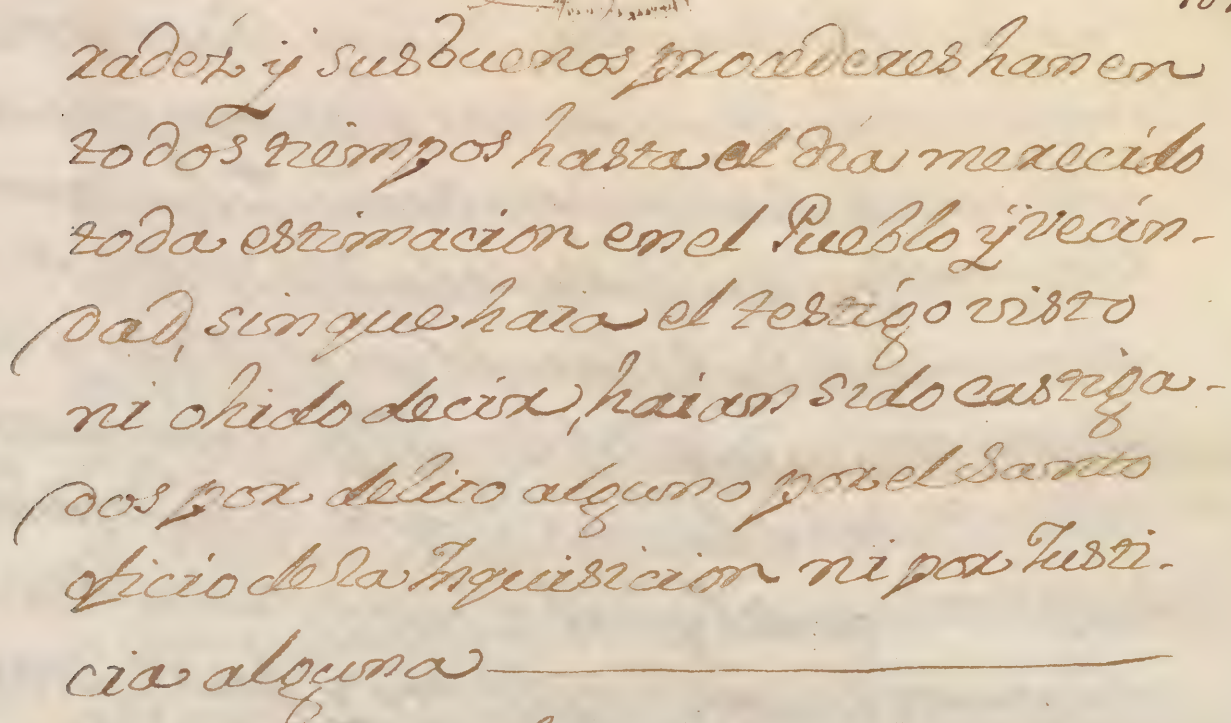 radez, y sus buenos procederes han en
todos tiempos hasta el dia merecido
toda estimacion en el Pueblo y vecin-
dad, sin que haia el testigo visto
ni ohido decir, haian sido castiga-
dos por delito alguno por el Santo
oficio de la Inquisicion ni por Justi-
cia alguna